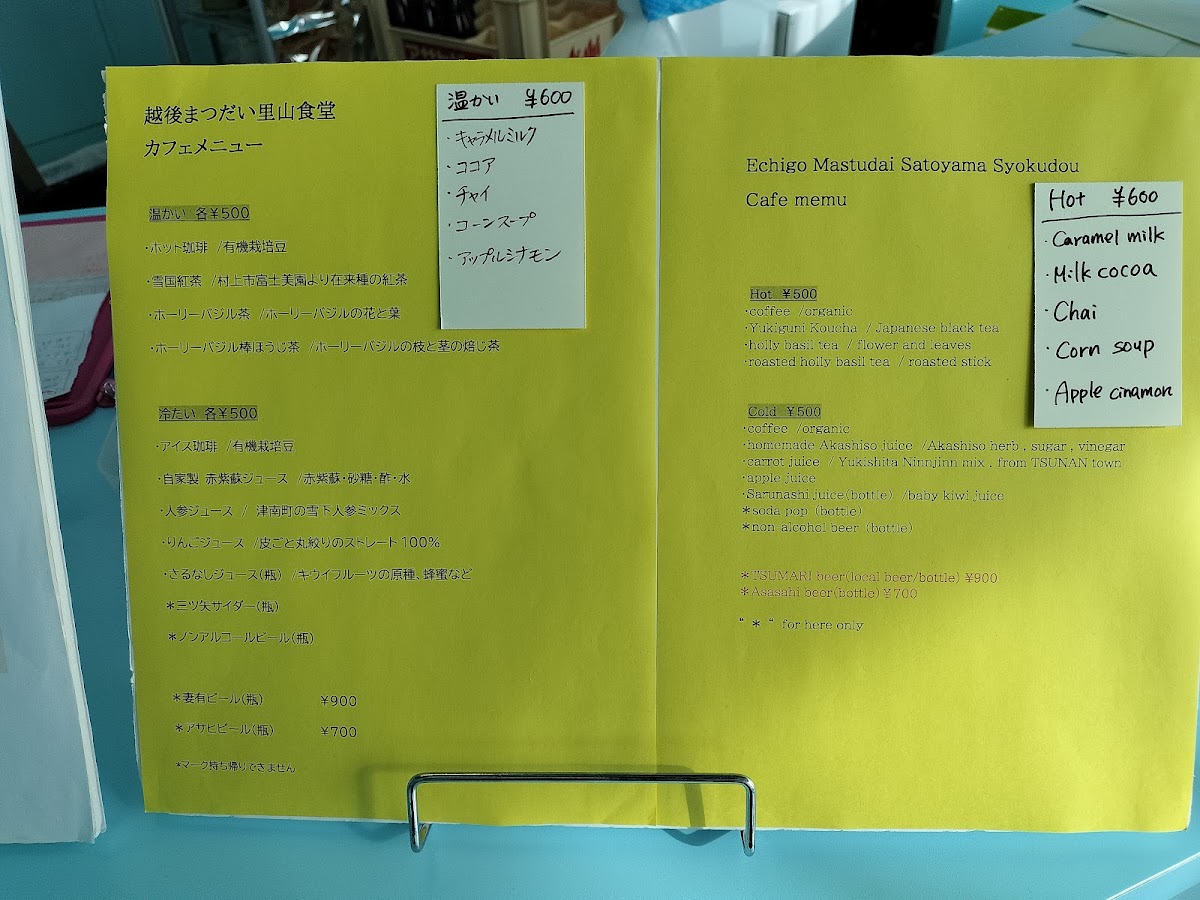 越後まつだい里山食堂
カフェメニュー
温かい 各¥500
・ホット珈琲 /有機栽培豆
・雪国紅茶 /村上市冨士美園より在来種の紅茶
・ホーリーバジル茶 /ホーリーバジルの花と葉
・ホーリーバジル棒ほうじ茶 /ホーリーバジルの枝と茎の焙じ茶
冷たい 各¥500
・アイス珈琲 /有機栽培豆
・自家製 赤紫蘇ジュース /赤紫蘇・砂糖・酢・水
・人参ジュース / 津南町の雪下人参ミックス
・りんごジュース /皮ごと丸絞りのストレート100%
・さるなしジュース(瓶) /キウイフルーツの原種、蜂蜜など
＊三ツ矢サイダー(瓶)
＊ノンアルコールビール(瓶)
＊妻有ビール(瓶) ¥900
＊アサヒビール(瓶) ¥700
*マーク持ち帰りできません
温かい ¥600
・キャラメルミルク
・ココア
・チャイ
・コーンスープ
・アップルシナモン
Echigo Mastudai Satoyama Syokudou
Cafe memu
Hot ¥500
・coffee /organic
・Yukiguni Koucha / Japanese black tea
・holly basil tea / flower and leaves
・roasted holly basil tea / roasted stick
Cold ¥500
・coffee /organic
・homemade Akashiso juice /Akashiso herb , sugar , vinegar
・carrot juice / Yukishita Ninnjinn mix , from TSUNAN town
・apple juice
・Sarunashi juice(bottle) /baby kiwi juice
＊soda pop (bottle)
＊non-alcohol beer (bottle)
＊TSUMARI beer(local beer/bottle) ¥900
＊Asasahi beer(bottle) ¥700
“ ＊ “ for here only
Hot ¥600
・Caramel milk
・Milk cocoa
・Chai
・Corn soup
・Apple cinamon